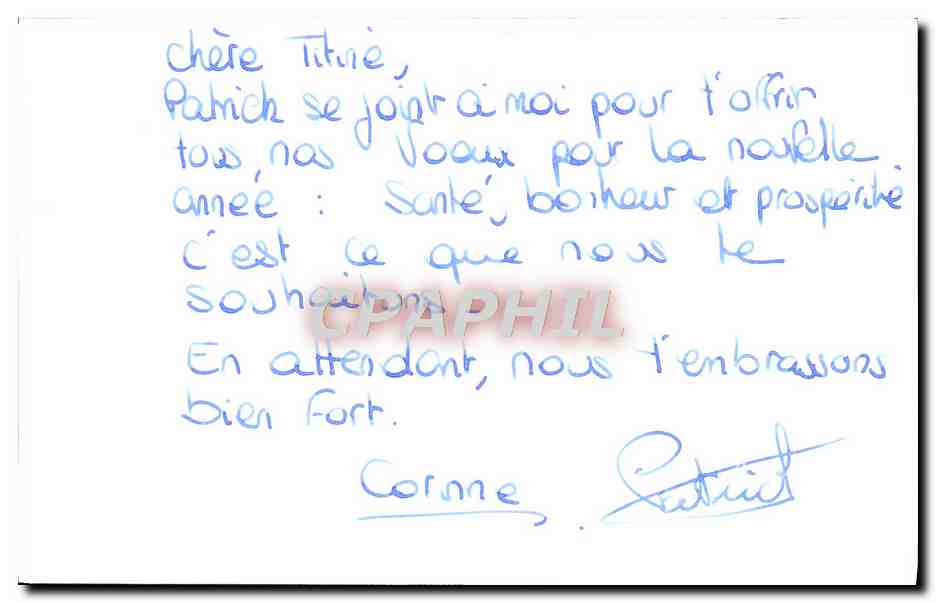 Chère Titine,
Patrick se joint à moi pour t'offrir
tous nos voeux pour la nouvelle
année : Santé, bonheur et prospérité
c'est ce que nous te
souhaitons.
CPAPHIL
En attendant, nous t'embrassons
bien fort.
Corinne Patrick